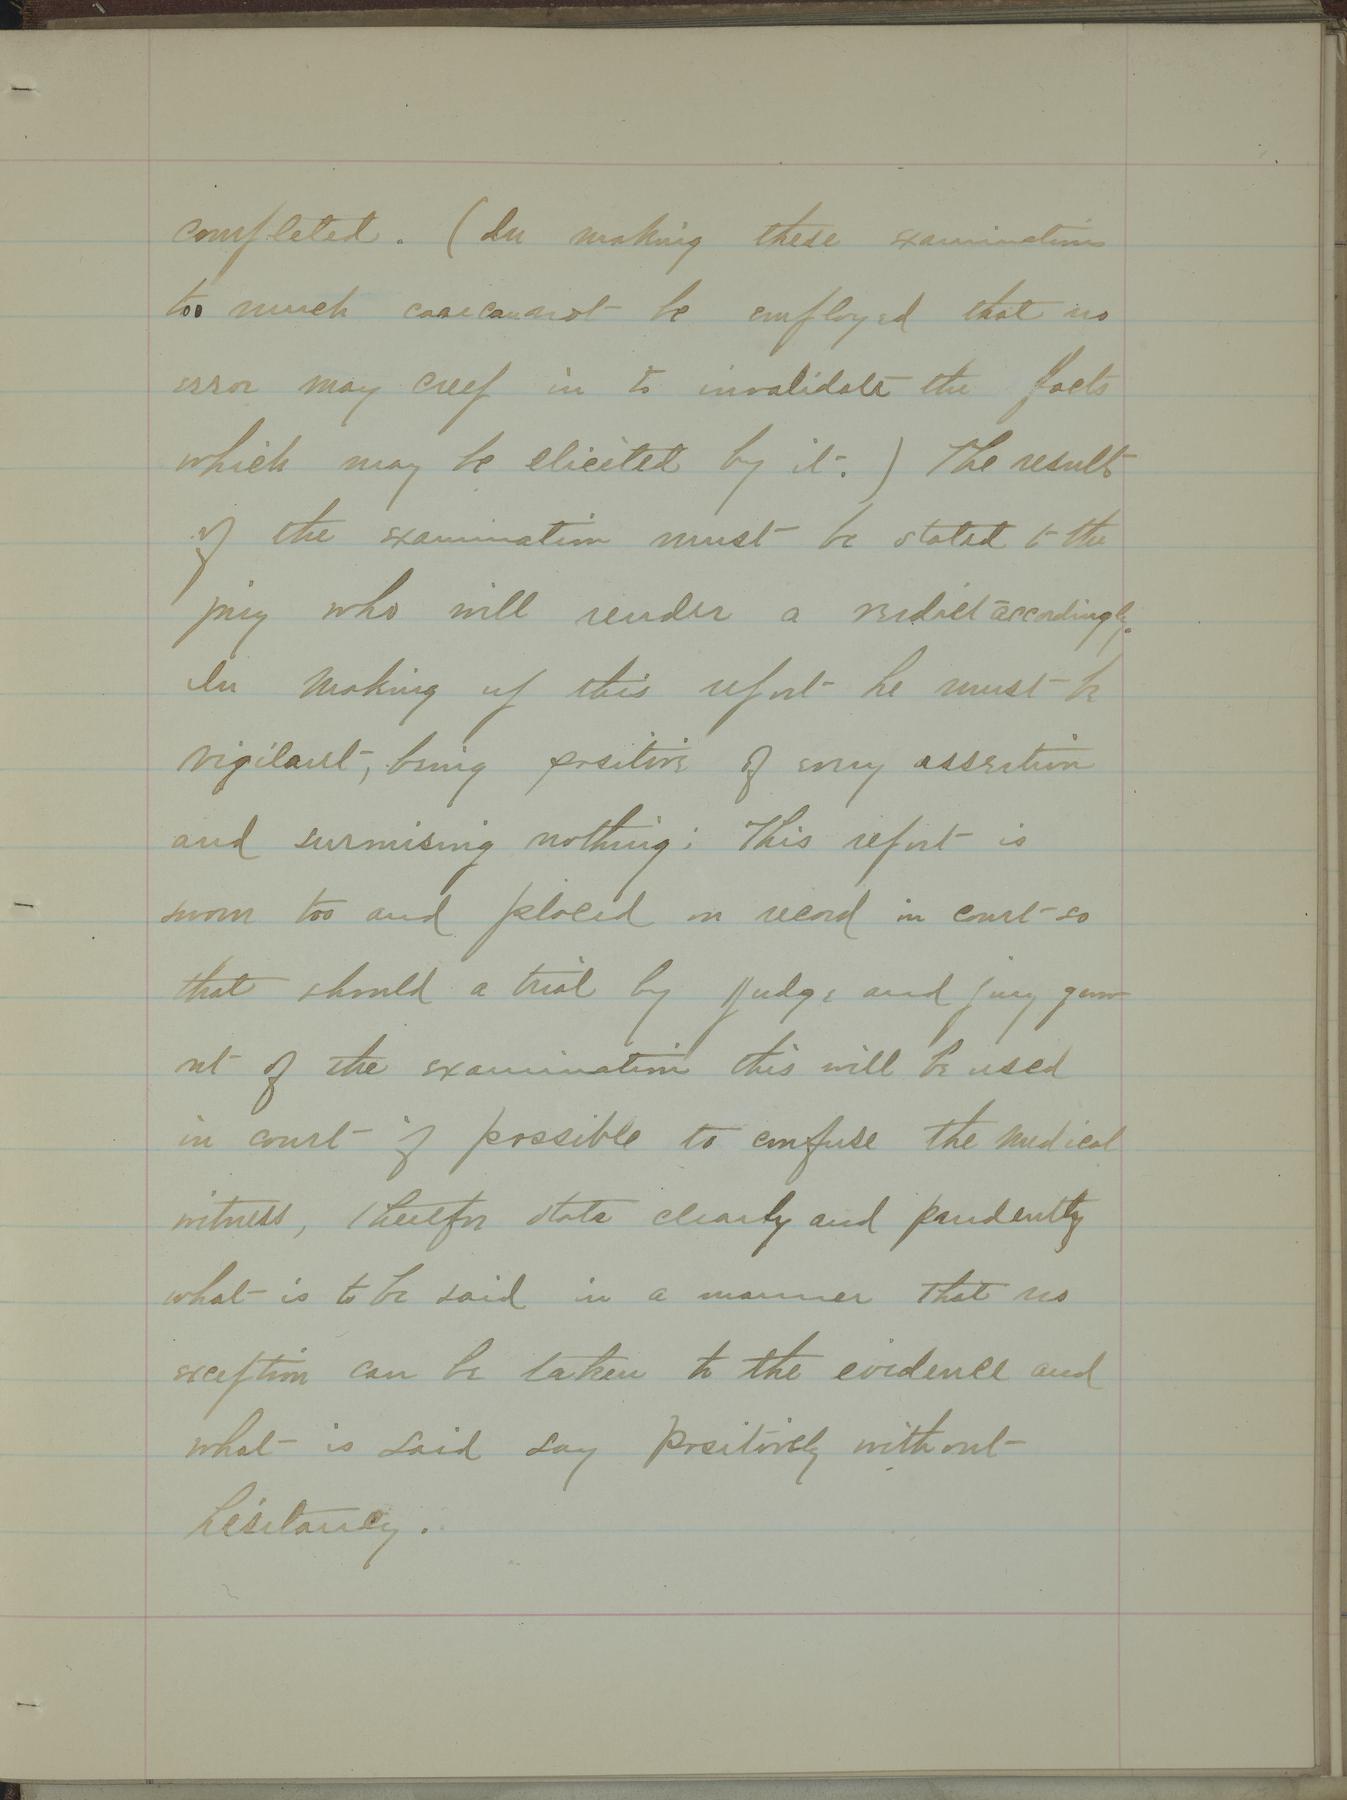 completed. (In making these examinations
too much care cannot be employed that no
error may creep in to invalidate the facts
which may be elicited by it.) The result
of the examination must be stated to the
jury who will render a verdict accordingly.
In making up this report he must be
vigilant, being positive of every assertion
and surmising nothing; This report is
sworn too and placed on record in court so
that should a trial by judge and jury grow
out of the examination this will be used
in court if possible to confuse the medical
witness, therefor state clearly and prudently
what is to be said in a manner that no
exception can be taken to the evidence and
what is said say positively without
hesitancy.